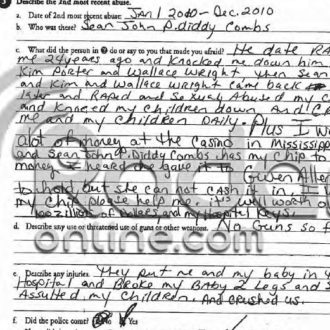 Describe the 2nd most recent abuse.
a. Date of 2nd most recent abuse: JAN 1 2010 - Dec. 2010
b. Who was there? Sean John P. diddy Combs
c. What did the person in do or say to that made you afraid? He date RA
me 24 years ago and Knocked me down him
Kim Porter and Wallace Wright. when Sean
and Kim and Wallace Wright came back
later and RAped and Sexually Abused my C
and Knocced my Children down And! CR
me and my Children DAILY. Plus I Wi
alot of money at the Casino in Mississipp
and Sean John P. Diddy Combs has my Chip to
money I heard he gave it to Gwen Alle
to hold, but she can not CASH it in, It
my Chip please help me. it's well worth o
100 zillion of Dollars and my Hospital Keys.
d. Describe any use or threatened use of guns or other weapons. No Guns so f
online.com
e. Describe any injuries. They put me and my baby in y
Hospital and Broke my BAby 2 Legs and S
Assulted my Children. And crushed us.
f. Did the police come? No Yes